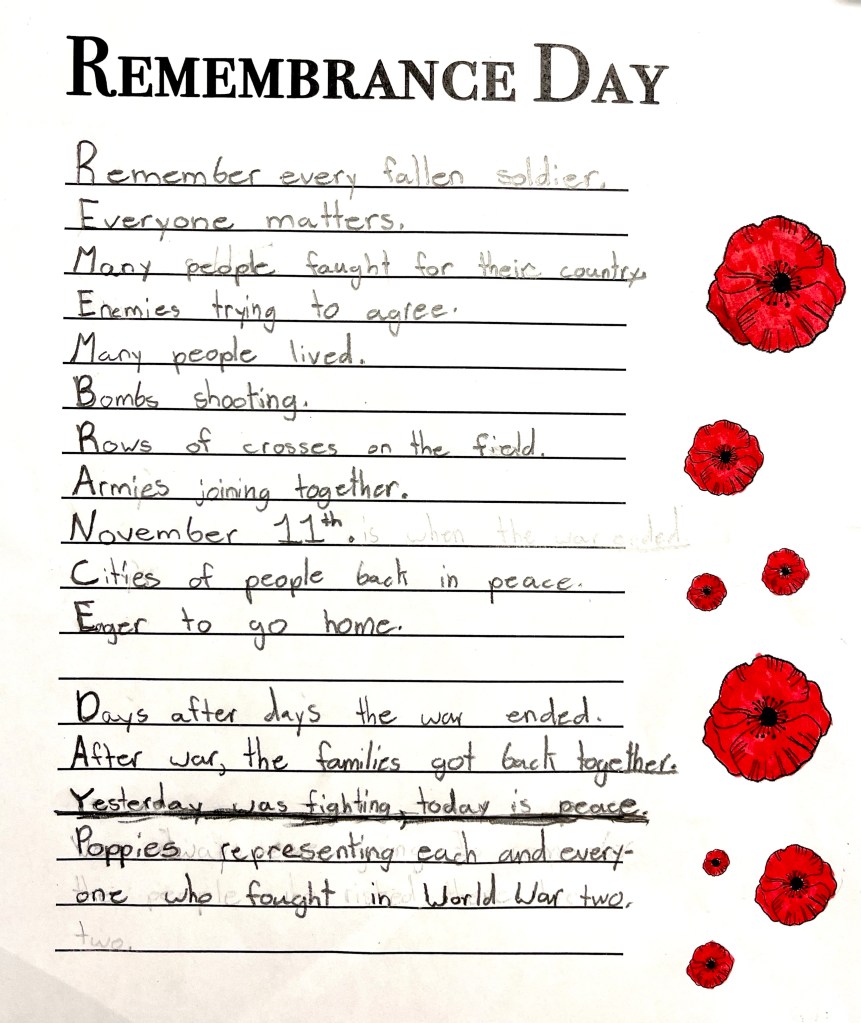 REMEMBRANCE DAY
Remember every fallen soldier.
Everyone matters.
Many people faught for their country.
Enemies trying to agree.
Many people lived.
Bombs shooting.
Rows of crosses on the field.
Armies joining together.
November 11th. is when the war ended
Cities of people back in peace.
Eager to go home.
Days after days the war ended.
After war, the families got back together.
Yesterday was fighting, today is peace.
Poppies representing each and every-
one who fought in World War two.
two.